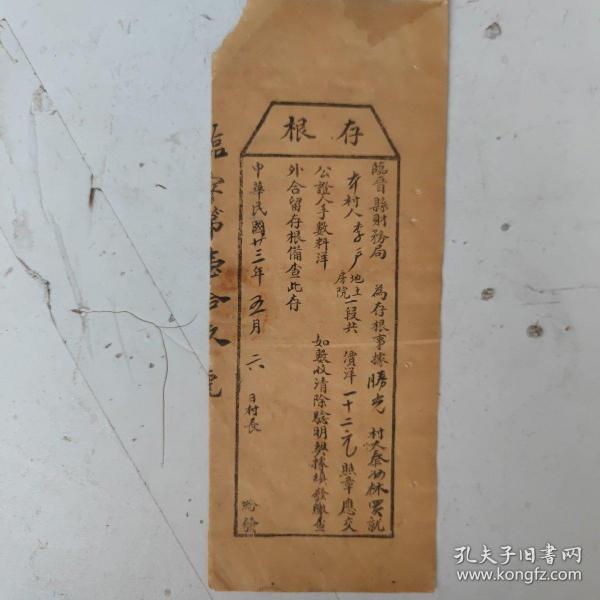 存根
臨晉縣財務局 為存根事據勝光 村人秦 林買就
本村人李 戶 地土 房院 一段共 價洋一十二元照章應交
公證人手數料洋 如數收清除驗明契據填發繳查
外合留存根備查此存
中華民國廿三年五月六日村長
臨字第壹拾 號
孔夫子旧书网
www.kongfz.com